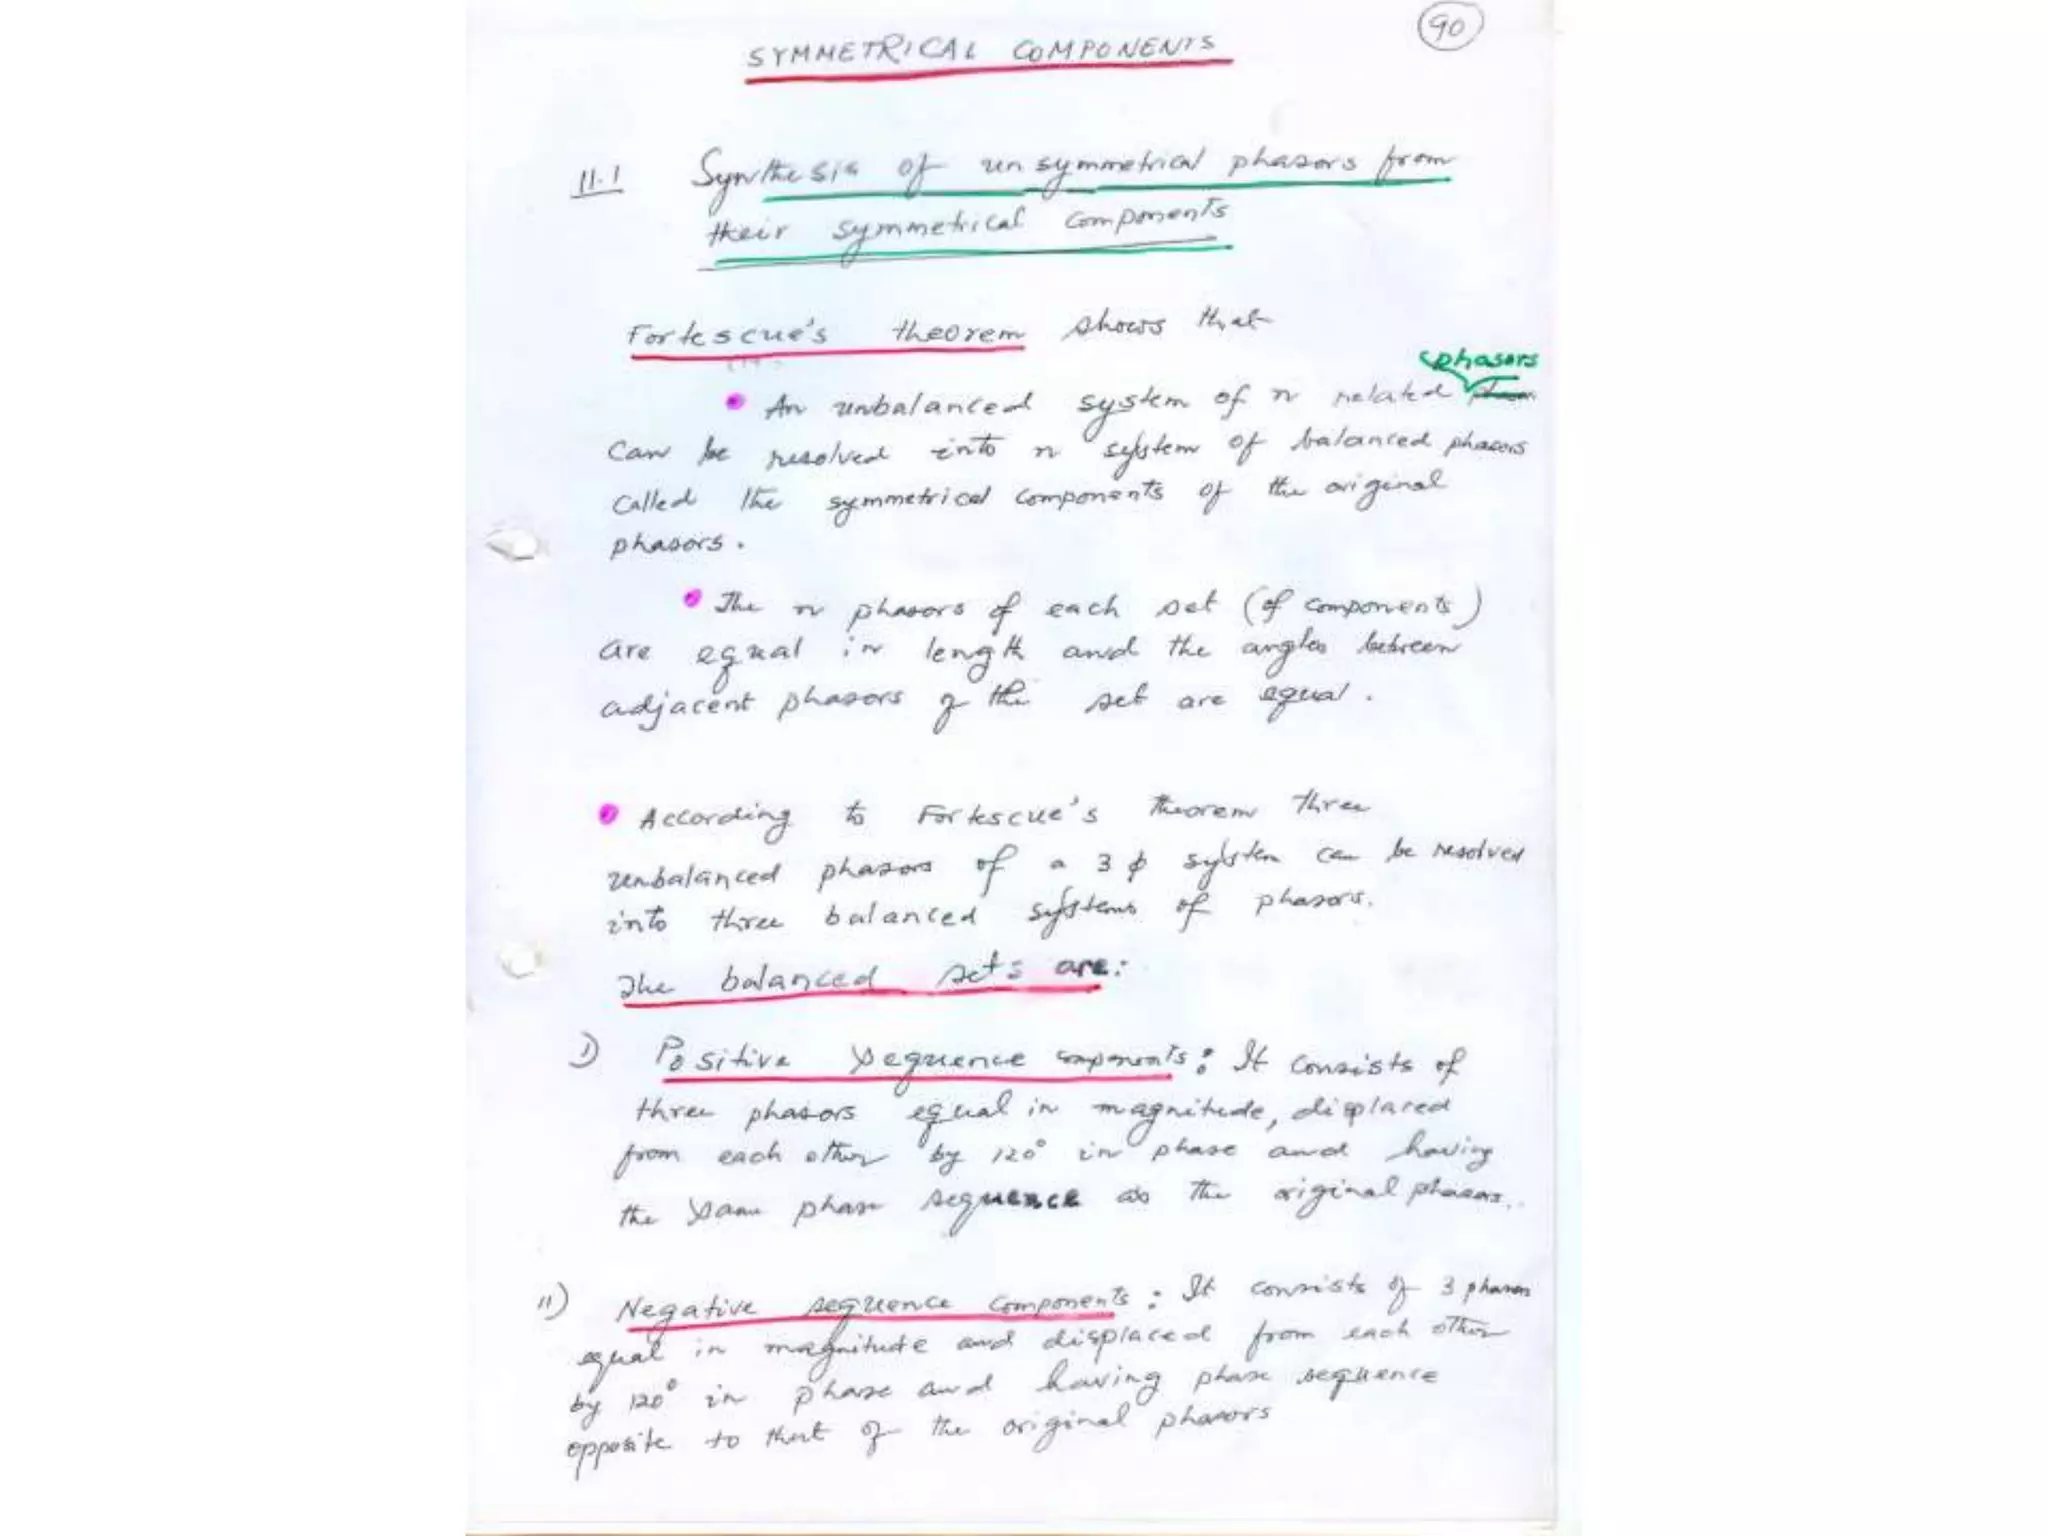 90
SYMMETRICAL COMPONENTS
11.1 Synthesis of unsymmetrical phasors from
their symmetrical components
Fortescue's theorem shows that
phasors
• An unbalanced system of n related
can be resolved into n system of balanced phasors
called the symmetrical components of the original
phasors.
• The n phasors of each set (of components)
are equal in length and the angles between
adjacent phasors of the set are equal.
• According to Fortescue's theorem three
unbalanced phasors of a 3 ϕ system can be resolved
into three balanced systems of phasors.
The balanced sets are:
I) Positive sequence components: It consists of
three phasors equal in magnitude, displaced
from each other by 120° in phase and having
the same phase sequence as the original phasors.
II) Negative sequence components: It consists of 3 phasors
equal in magnitude and displaced from each other
by 120° in phase and having phase sequence
opposite to that of the original phasors